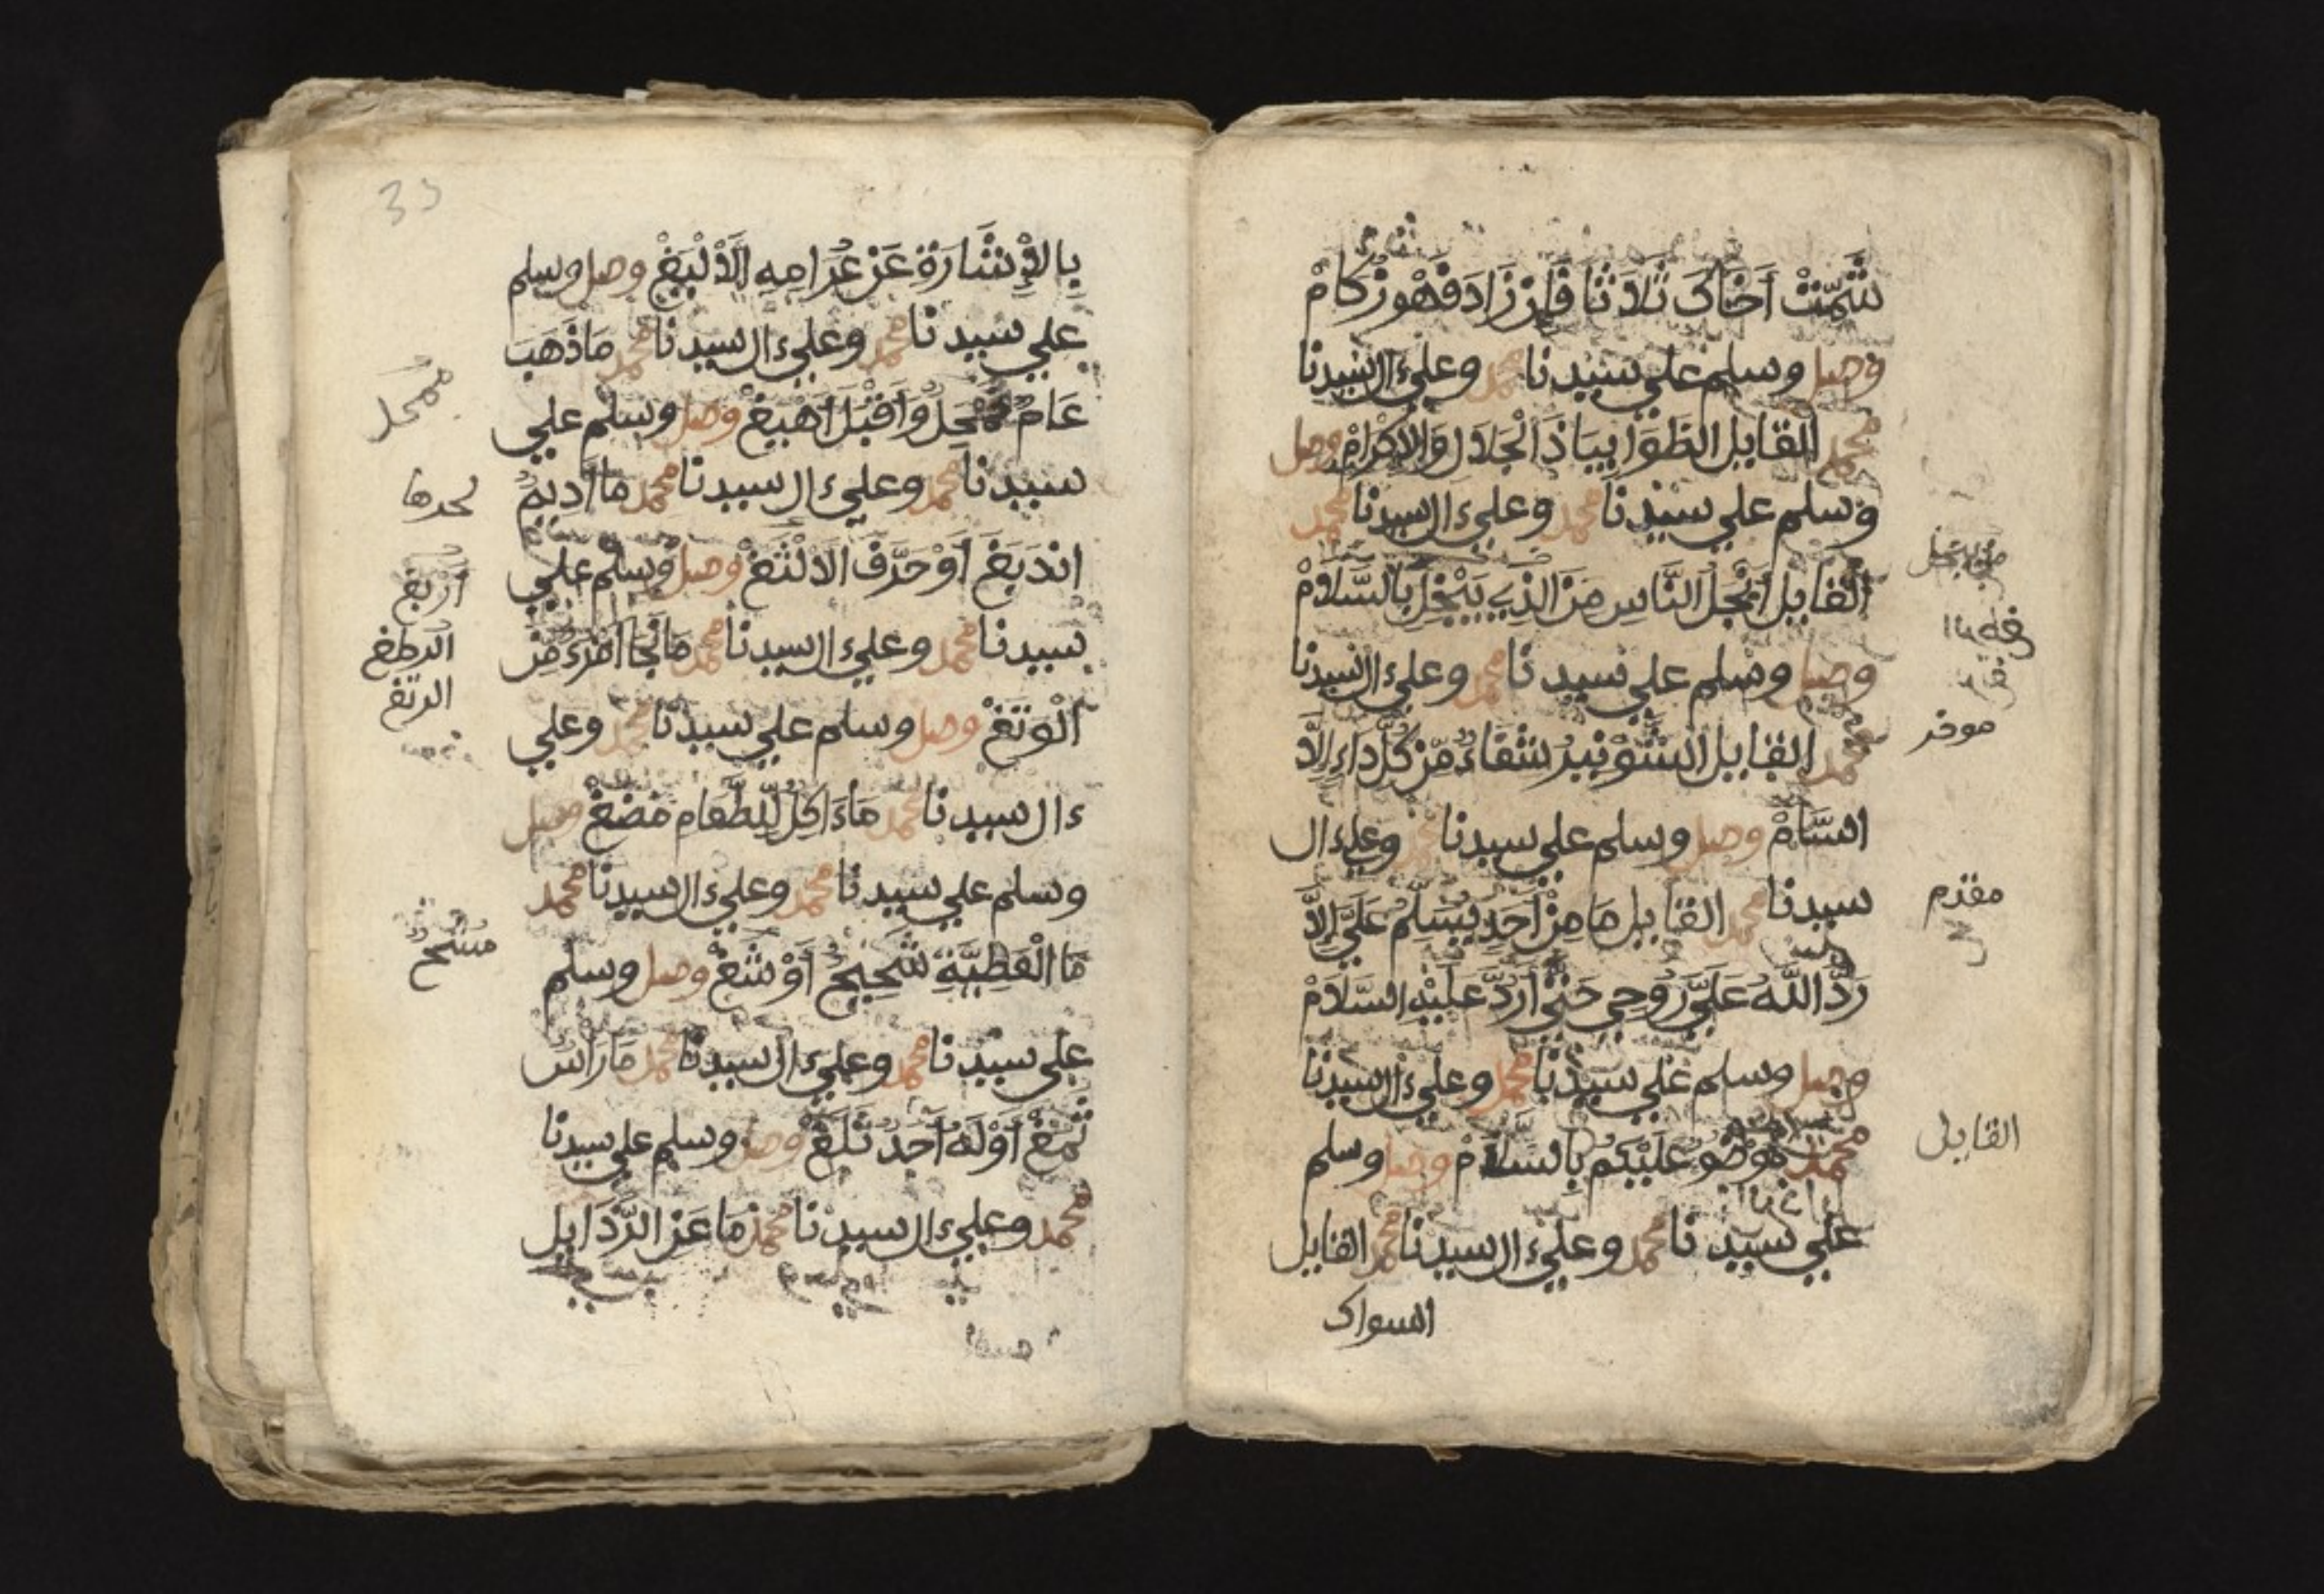 شَمِّتْ أَخَاكَ ثَلَاثًا فَإِن زَادَ فَهْوَ زُكَامْ
وصل وسلم علي سيدنا محمد وعلي ءال سيدنا
محمد القايل الظوا بيا ذا الجلال والاكرام وصل
وسلم علي سيدنا محمد وعلي ءال سيدنا محمد
القايل ابخل الناس من الذي يبخل بالسلام
وصل وسلم علي سيدنا محمد وعلي ءال سيدنا
محمد القايل الشونيز شفاء من كل داء الا
السام وصل وسلم علي سيدنا محمد وعلي ءال
سيدنا محمد القايل ما من احد يسلم علي الا
رد الله علي روحي حتي ارد عليه السلام
وصل وسلم علي سيدنا محمد وعلي ءال سيدنا
محمد عليكم بالسلام وصل وسلم
علي سيدنا محمد وعلي ءال سيدنا محمد القايل
السواك
مقدم
القايل
33
بالاشارة عن غرامه الالبغ وصل وسلم
علي سيدنا محمد وعلي ءال سيدنا محمد ما ذهب
عام ممحل واقبل اهبغ وصل وسلم علي
سيدنا محمد وعلي ءال سيدنا محمد ما اديم
اندبغ او حرف الالثغ وصل وسلم علي
سيدنا محمد وعلي ءال سيدنا محمد ما نجا امرء من
الوتغ وصل وسلم علي سيدنا محمد وعلي
ءال سيدنا محمد ما ءاكل للطعام مضغ وصل
وسلم علي سيدنا محمد وعلي ءال سيدنا محمد
ما العطية شحيح او شغ وصل وسلم
علي سيدنا محمد وعلي ءال سيدنا محمد ما راس
ثمغ او له احد ثلغ وصل وسلم علي سيدنا
محمد وعلي ءال سيدنا محمد ما عن الرذايل
ممحل